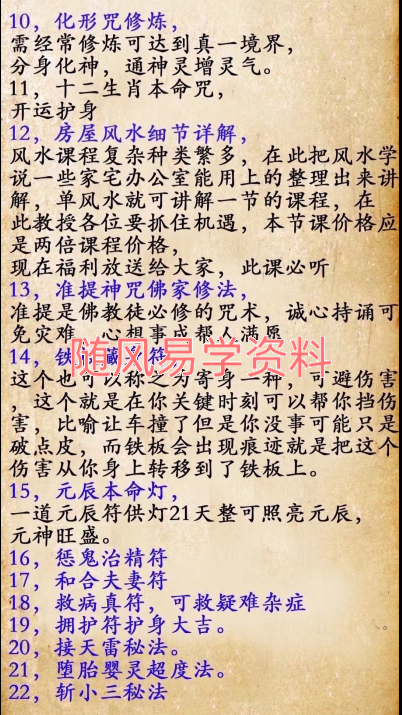 10，化形咒修炼，
需经常修炼可达到真一境界，
分身化神，通神灵增灵气。
11，十二生肖本命咒，
开运护身
12，房屋风水细节详解，
风水课程复杂种类繁多，在此把风水学
说一些家宅办公室能用上的整理出来讲
解，单风水就可讲解一节的课程，在
此教授各位要抓住机遇，本节课价格应
是两倍课程价格，
现在福利放送给大家，此课必听
13，准提神咒佛家修法，
准提是佛教徒必修的咒术，诚心持诵可
免灾难，心想事成帮人满愿
14，铁
符，
随风易学资料
这个也可以称之为寄身一种，可避伤害
，这个就是在你关键时刻可以帮你挡伤
害，比喻让车撞了但是你没事可能只是
破点皮，而铁板会出现痕迹就是把这个
伤害从你身上转移到了铁板上。
15，元辰本命灯，
一道元辰符供灯21天整可照亮元辰，
元神旺盛。
16，惩鬼治精符
17，和合夫妻符
18，救病真符，可救疑难杂症
19，拥护符护身大吉。
20，接天雷秘法。
21，堕胎婴灵超度法。
22，斩小三秘法